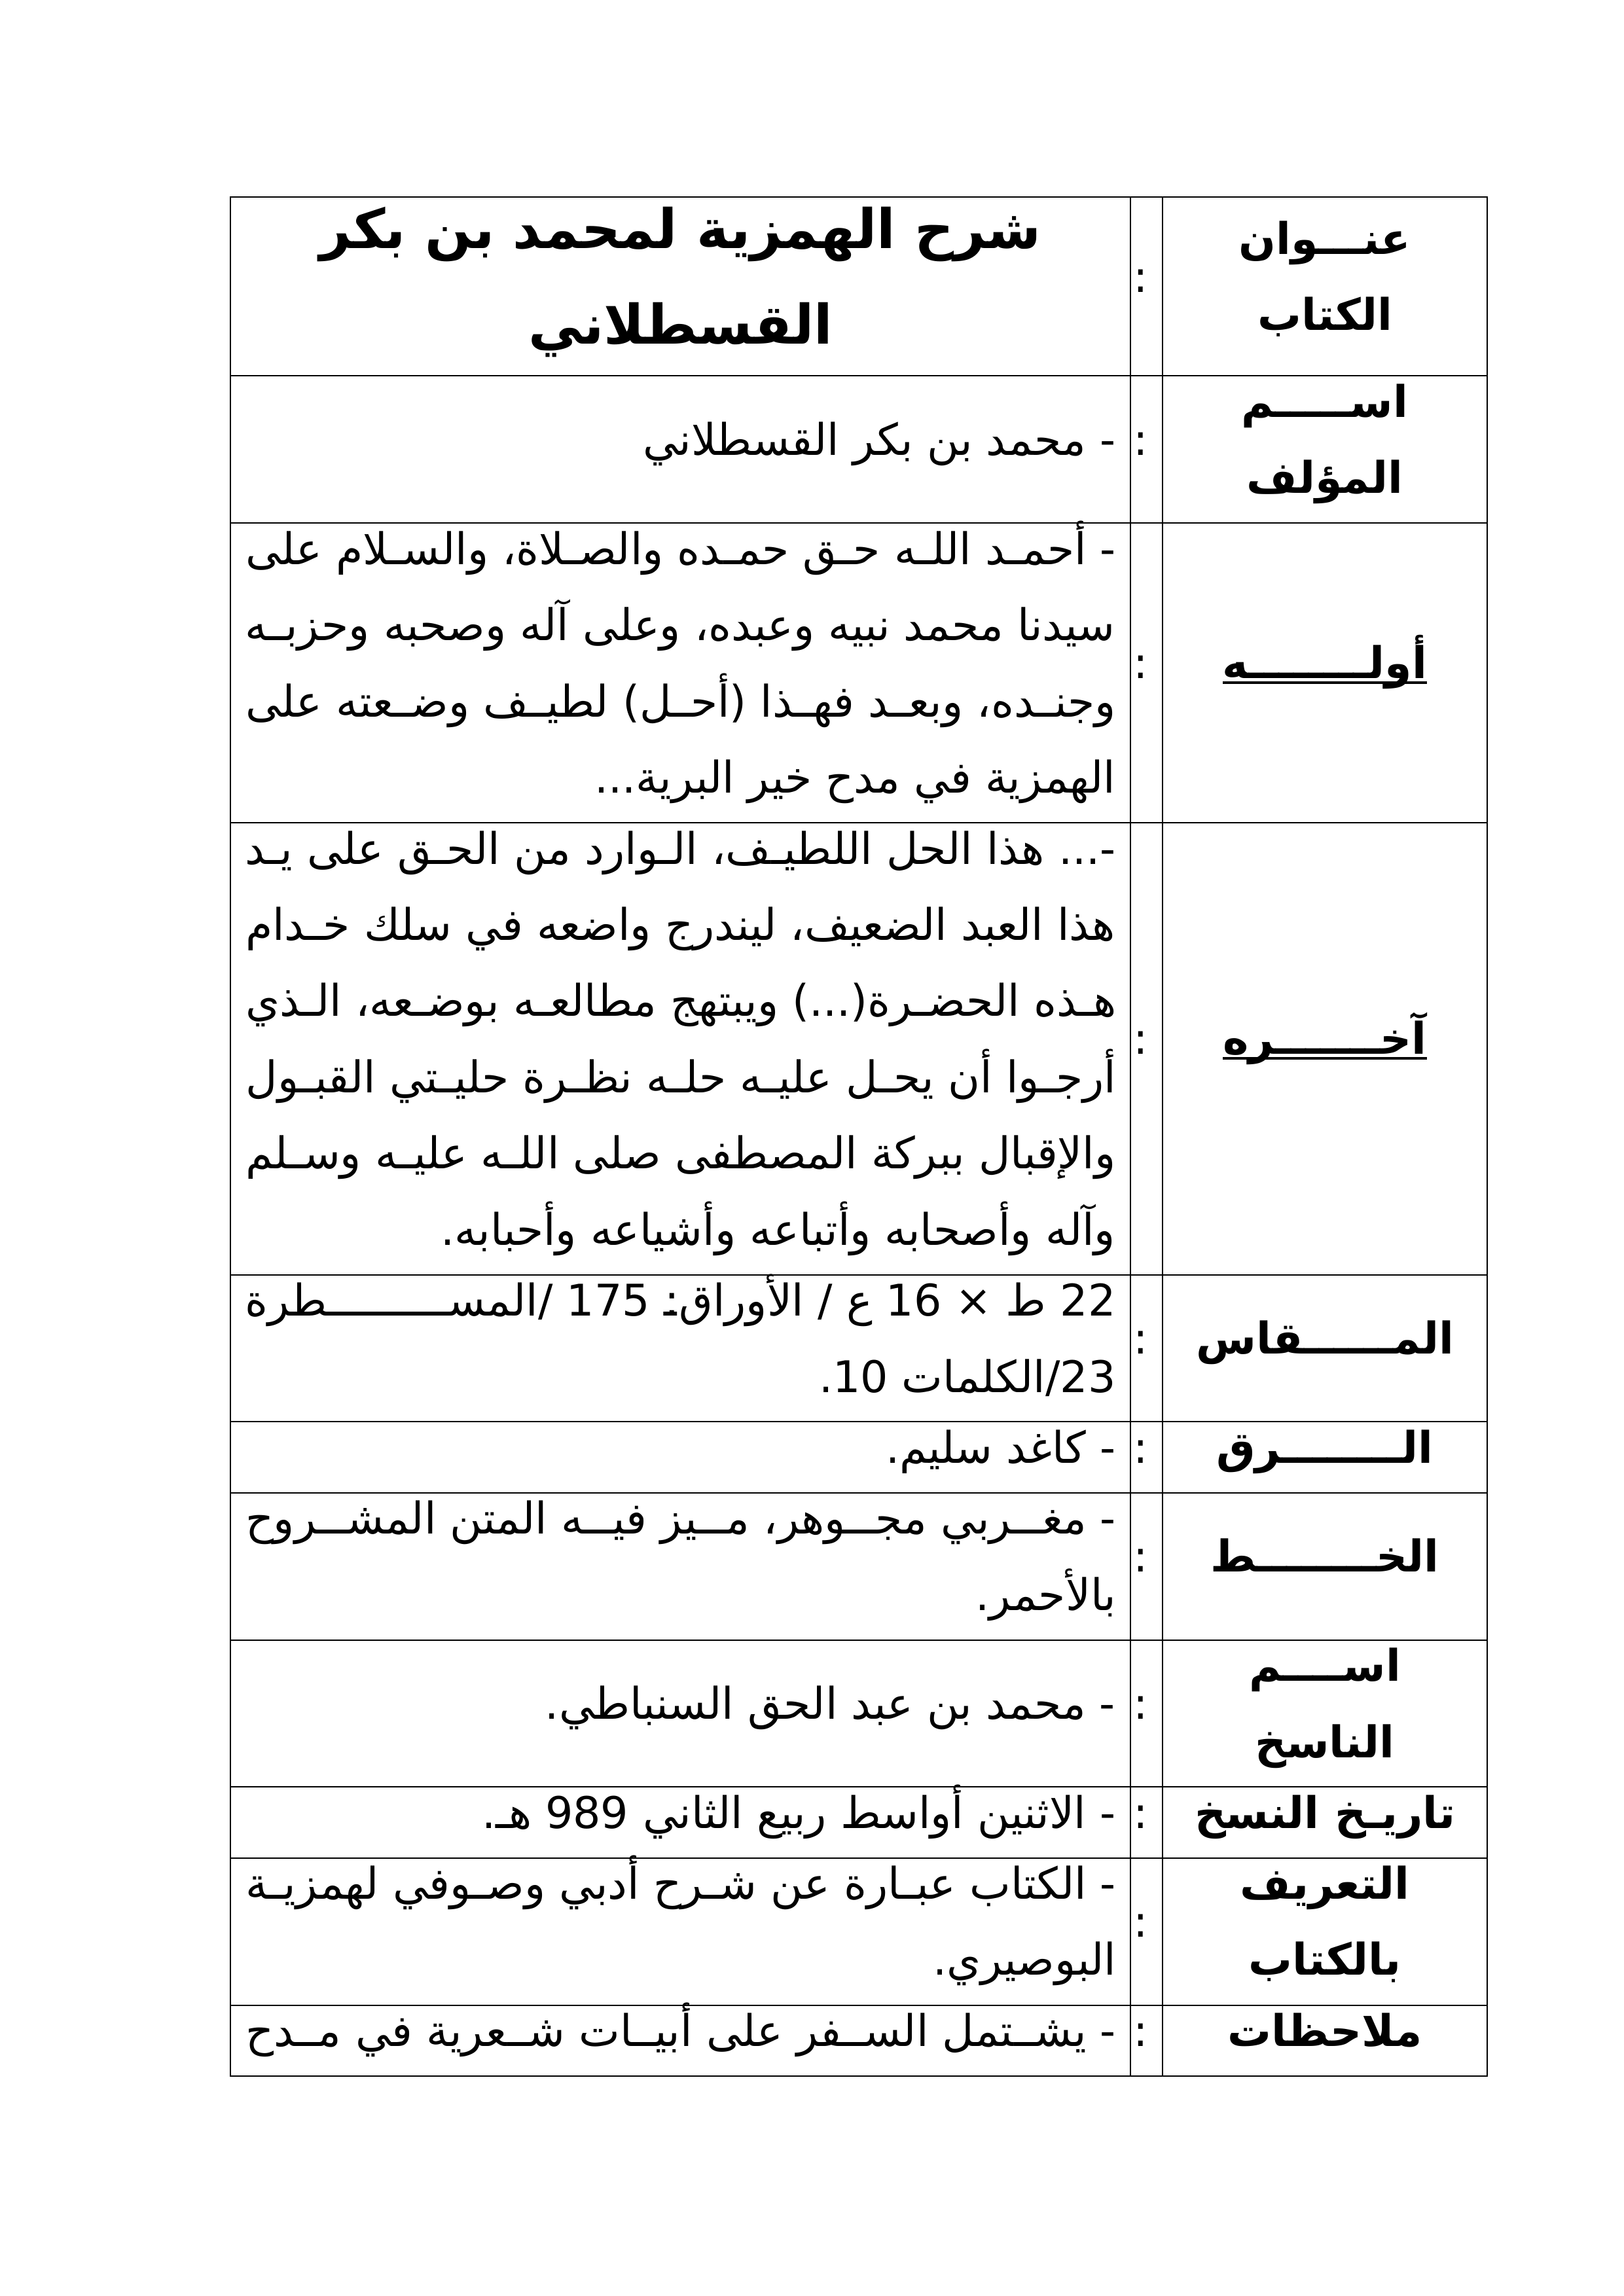 عنـــوان
الكتاب
:
شرح الهمزية لمحمد بن بكر
القسطلاني
اســـــم
المؤلف
:
- محمد بن بكر القسطلاني
أولــــــــه
:
- أحمـد اللـه حـق حمـده والصـلاة، والسـلام على
سيدنا محمد نبيه وعبده، وعلى آله وصحبه وحزبـه
وجنـده، وبعـد فهـذا (أحـل) لطيـف وضـعته على
الهمزية في مدح خير البرية...
آخـــــــره
:
-... هذا الحل اللطيـف، الـوارد من الحـق على يـد
هذا العبد الضعيف، ليندرج واضعه في سلك خـدام
هـذه الحضـرة(...) ويبتهج مطالعـه بوضـعه، الـذي
أرجـوا أن يحـل عليـه حلـه نظـرة حليـتي القبـول
والإقبال ببركة المصطفى صلى اللـه عليـه وسـلم
وآله وأصحابه وأتباعه وأشياعه وأحبابه.
المــــــقاس
:
22 ط × 16 ع / الأوراق: 175 /المســـــــــطرة
23/الكلمات 10.
الــــــــرق
:
- كاغد سليم.
الخــــــــط
:
- مغــربي مجــوهر، مــيز فيــه المتن المشــروح
بالأحمر.
اســــم
الناسخ
:
- محمد بن عبد الحق السنباطي.
تاريـخ النسخ
:
- الاثنين أواسط ربيع الثاني 989 هـ.
التعريف
بالكتاب
:
- الكتاب عبـارة عن شـرح أدبي وصـوفي لهمزيـة
البوصيري.
ملاحظات
:
- يشــتمل الســفر على أبيــات شــعرية في مــدح